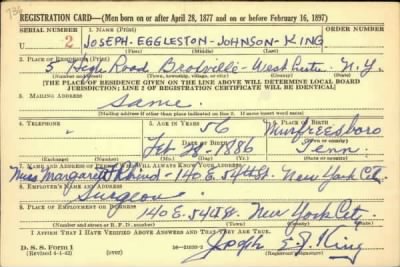 736
REGISTRATION CARD—(Men born on or after April 28, 1877 and on or before February 16, 1897)
SERIAL NUMBER 1. NAME (Print) ORDER NUMBER
U 2 JOSEPH - EGGLESTON - JOHNSON - KING
(First) (Middle) (Last)
2. PLACE OF RESIDENCE (Print)
5 High Road Bronxville - West Chester N. Y.
(Number and street) (Town, township, village, or city) (County) (State)
[THE PLACE OF RESIDENCE GIVEN ON THE LINE ABOVE WILL DETERMINE LOCAL BOARD
JURISDICTION; LINE 2 OF REGISTRATION CERTIFICATE WILL BE IDENTICAL]
3. MAILING ADDRESS
Same.
[Mailing address if other than place indicated on line 2. If same insert word same]
4. TELEPHONE 5. AGE IN YEARS 56 6. PLACE OF BIRTH
Murfreesboro
DATE OF BIRTH (Town or county)
Feb 1886 Tenn.
(Exchange) (Number) (Mo.) (Day) (Yr.) (State or country)
7. NAME AND ADDRESS OF PERSON WHO WILL ALWAYS KNOW YOUR ADDRESS
Miss Margaret - 140 E. 54th St. New York City
8. EMPLOYER'S NAME AND ADDRESS
Surgeon
9. PLACE OF EMPLOYMENT OR BUSINESS
140 E. 54th St. New York City.
(Number and street or R. F. D. number) (Town) (County) (State)
I AFFIRM THAT I HAVE VERIFIED ABOVE ANSWERS AND THAT THEY ARE TRUE.
D. S. S. Form 1
(Revised 4-1-42) (over) 16-21630-2 Joseph E. J. King
(Registrant's signature)